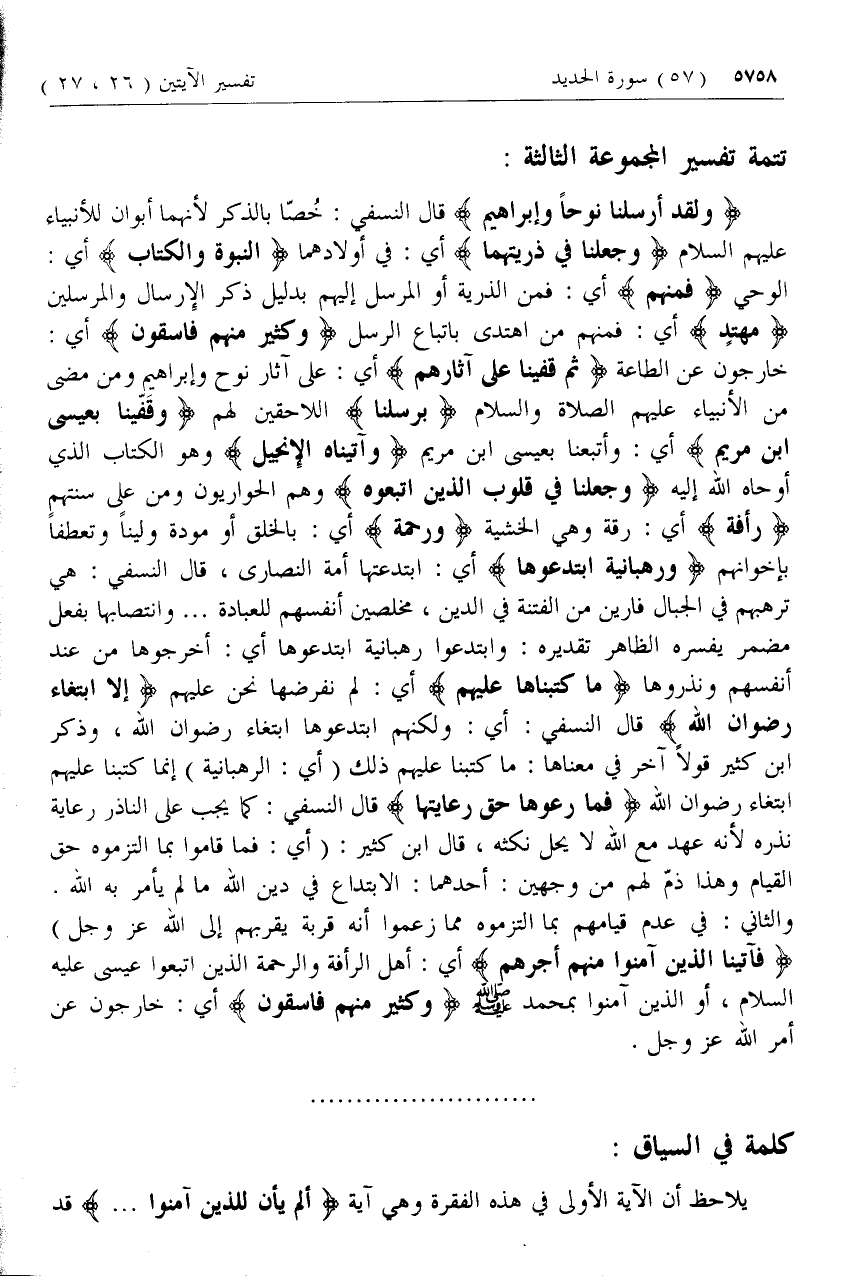 ٥٧٥٨ ( ٥٧ ) سورة الحديد تفسير الآيتين ( ٢٦ ، ٢٧ )
تتمة تفسير المجموعة الثالثة :
﴿ ولقد أرسلنا نوحاً وإبراهيم ﴾ قال النسفي : خُصّا بالذكر لأنهما أبوان للأنبياء
عليهم السلام ﴿ وجعلنا في ذريتهما ﴾ أي : في أولادهما ﴿ النبوة والكتاب ﴾ أي :
الوحي ﴿ فمنهم ﴾ أي : فمن الذرية أو المرسل إليهم بدليل ذكر الإرسال والمرسلين
﴿ مهتدٍ ﴾ أي : فمنهم من اهتدى باتباع الرسل ﴿ وكثير منهم فاسقون ﴾ أي :
خارجون عن الطاعة ﴿ ثم قفينا على آثارهم ﴾ أي : على آثار نوح وإبراهيم ومن مضى
من الأنبياء عليهم الصلاة والسلام ﴿ برسلنا ﴾ اللاحقين لهم ﴿ وقَفّينا بعيسى
ابن مريم ﴾ أي : وأتبعنا بعيسى ابن مريم ﴿ وآتيناه الإنجيل ﴾ وهو الكتاب الذي
أوحاه الله إليه ﴿ وجعلنا في قلوب الذين اتبعوه ﴾ وهم الحواريون ومن على سنتهم
﴿ رأفة ﴾ أي : رقة وهي الخشية ﴿ ورحمة ﴾ أي : بالخلق أو مودة وليناً وتعطفاً
بإخوانهم ﴿ ورهبانية ابتدعوها ﴾ أي : ابتدعتها أمة النصارى ، قال النسفي : هي
ترهبهم في الجبال فارين من الفتنة في الدين ، مخلصين أنفسهم للعبادة ... وانتصابها بفعل
مضمر يفسره الظاهر تقديره : وابتدعوا رهبانية ابتدعوها أي : أخرجوها من عند
أنفسهم ونذروها ﴿ ما كتبناها عليهم ﴾ أي : لم نفرضها نحن عليهم ﴿ إلا ابتغاء
رضوان الله ﴾ قال النسفي : أي : ولكنهم ابتدعوها ابتغاء رضوان الله ، وذكر
ابن كثير قولاً آخر في معناها : ما كتبنا عليهم ذلك ( أي : الرهبانية ) إنما كتبنا عليهم
ابتغاء رضوان الله ﴿ فما رعوها حق رعايتها ﴾ قال النسفي : كما يجب على الناذر رعاية
نذره لأنه عهد مع الله لا يحل نكثه ، قال ابن كثير : ( أي : فما قاموا بما التزموه حق
القيام وهذا ذمّ لهم من وجهين : أحدهما : الابتداع في دين الله ما لم يأمر به الله .
والثاني : في عدم قيامهم بما التزموه مما زعموا أنه قربة يقربهم إلى الله عز وجل )
﴿ فآتينا الذين آمنوا منهم أجرهم ﴾ أي : أهل الرأفة والرحمة الذين اتبعوا عيسى عليه
السلام ، أو الذين آمنوا بمحمد ﷺ ﴿ وكثير منهم فاسقون ﴾ أي : خارجون عن
أمر الله عز وجل .
.........................
كلمة في السياق :
يلاحظ أن الآية الأولى في هذه الفقرة وهي آية ﴿ ألم يأن للذين آمنوا ... ﴾ قد